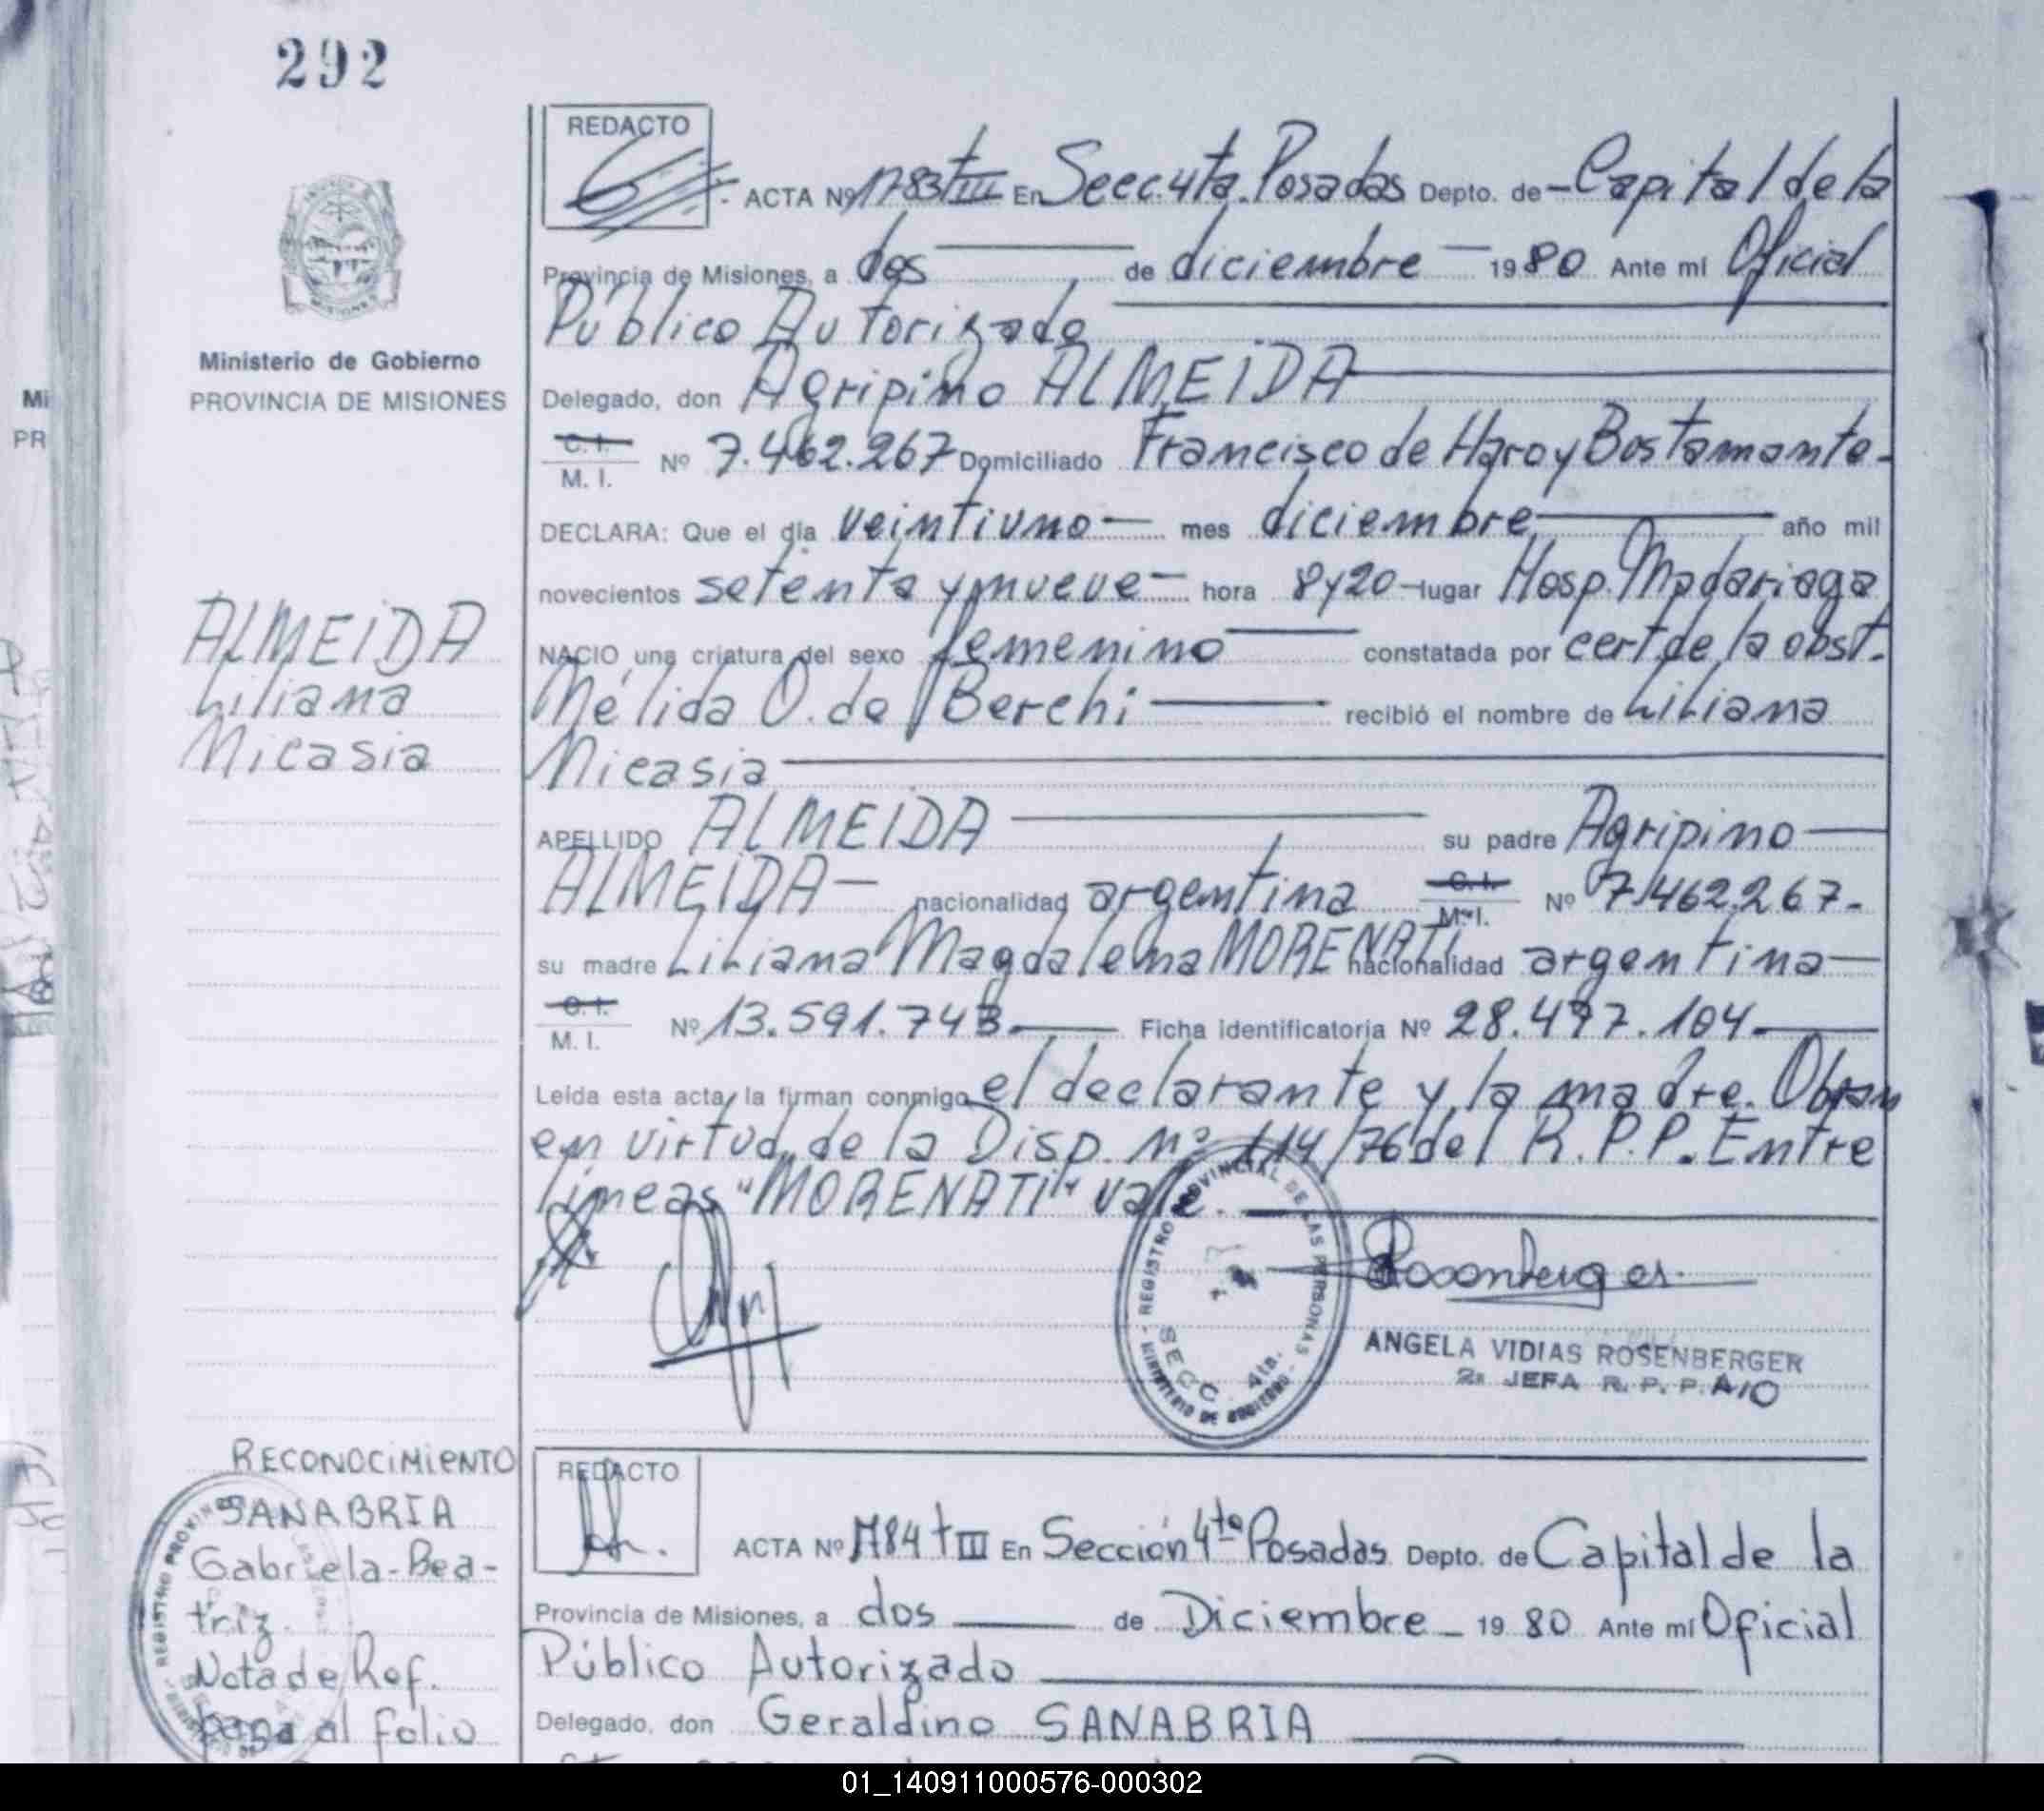 292
REDACTO
ACTA Nº 1783 t III En Secc. 4ta. Posadas Depto. de Capital de la
Provincia de Misiones, a dos de diciembre 1980 Ante mi Oficial
Público Autorizado
Ministerio de Gobierno
PROVINCIA DE MISIONES
Delegado, don Agripino ALMEIDA
C. I.
M. I. Nº 7.462.267 Domiciliado Francisco de Haro y Bustamante-
DECLARA: Que el día veintiuno mes diciembre año mil
novecientos setenta y nueve hora 8 y 20 lugar Hosp. Madariaga
NACIO una criatura del sexo femenino constatada por cert. de la obst.
Nélida O. de Berchi recibió el nombre de Liliana
Nicasia
ALMEIDA
Liliana
Nicasia
APELLIDO ALMEIDA su padre Agripino
ALMEIDA nacionalidad argentina C. I. M. I. Nº 7.462.267.-
su madre Liliana Magdalena MORENATI nacionalidad argentina
C. I.
M. I. Nº 13.591.743. Ficha identificatoria Nº 28.497.104.
Leída esta acta, la firman conmigo el declarante y la madre. Obran
en virtud de la Disp. Nº 114/76 del R.P.P. Entre
líneas "MORENATI" vale.
REGISTRO PROVINCIAL DE LAS PERSONAS
SECC. 4ta.
MINISTERIO DE GOBIERNO
ANGELA VIDIAS ROSENBERGER
2a JEFA R. P. P. A/C
RECONOCIMIENTO
SANABRIA
Gabriela-Bea-
triz.
Nota de Ref.
pasa al folio
REDACTO
ACTA Nº 1784 t III En Sección 4ta Posadas Depto. de Capital de la
Provincia de Misiones, a dos de Diciembre 1980 Ante mí Oficial
Público Autorizado
Delegado, don Geraldino SANABRIA
01_140911000576-000302